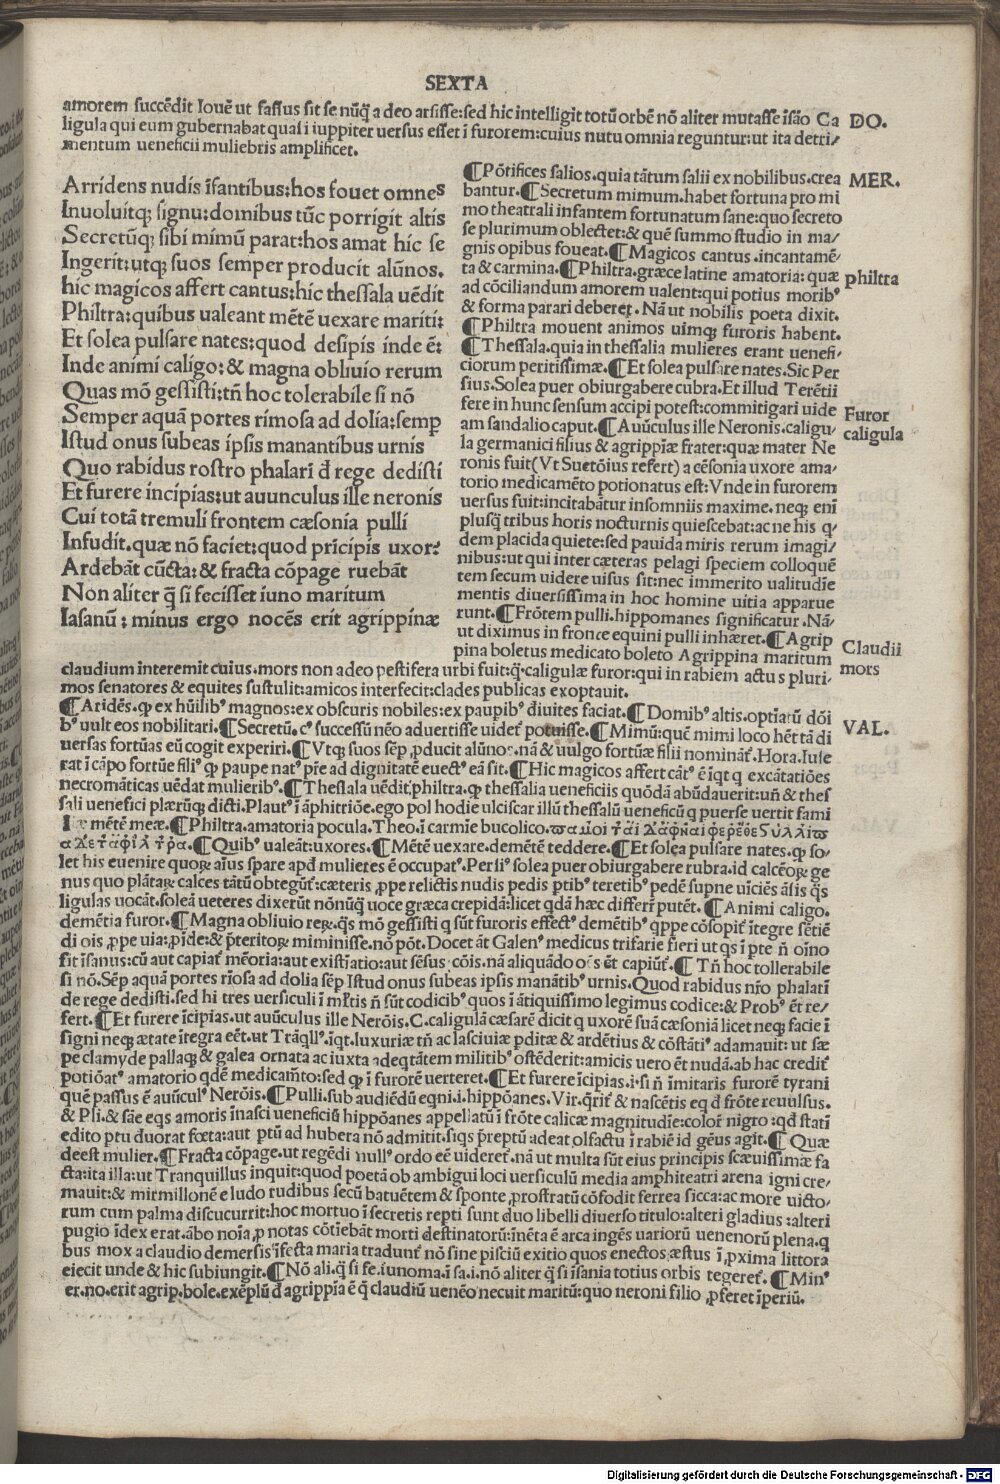 SEXTA
amorem succēdit Iouē ut fassus sit se nūq̄ a deo arsisse:sed hic intelligit totū orbē nō aliter mutasse īsāo Ca
DO.
ligula qui eum gubernabat quasi iuppiter uersus esset ī furorem:cuius nutu omnia reguntur:ut ita detri/
mentum ueneficii muliebris amplificet.
Arridens nudis īsantibus:hos fouet omnes
Inuoluitq; signu:domibus tūc porrigit altis
Secretūq; sibi mimū parat:hos amat hic se
Ingerit:utq; suos semper producit alūnos.
hic magicos affert cantus:hic thessala uēdit
Philtra:quibus ualeant mētē uexare mariti:
Et solea pulsare nates:quod desipis inde ē:
Inde animi caligo:& magna obliuio rerum
Quas mō gessisti:tn̄ hoc tolerabile si nō
Semper aquā portes rimosa ad dolia:semp
Istud onus subeas ipsis manantibus urnis
Quo rabidus rostro phalari đ rege dedisti
Et furere incipias:ut auunculus ille neronis
Cui totā tremuli frontem cæsonia pulli
Infudit.quæ nō faciet:quod prīcipis uxor?
Ardebāt cūcta:& fracta cōpage ruebāt
Non aliter q̄ si fecisset iuno maritum
Iasanū: minus ergo nocēs erit agrippinæ
¶Pōtifices salios.quia tātum salii ex nobilibus.crea
MER.
bantur.¶Secretum mimum.habet fortuna pro mi
mo theatrali infantem fortunatum sane:quo secreto
se plurimum oblectet:& quē summo studio in ma/
gnis opibus foueat.¶Magicos cantus.incantamē/
ta & carmina.¶Philtra.græce latine amatoria:quæ
philtra
ad cōciliandum amorem ualent:qui potius morib⁹
& forma parari deberet. Nā ut nobilis poeta dixit.
¶Philtra mouent animos uimq; furoris habent.
¶Thessala.quia in thessalia mulieres erant uenefi/
ciorum peritissimæ.¶Et solea pulsare nates.Sic Per
sius.Solea puer obiurgabere rubra.Et illud Terētii
fere in hunc sensum accipi potest:commitigari uide
Furor
am sandalio caput.¶Auūculus ille Neronis.caligu/
caligula
la germanici filius & agrippīæ frater:quæ mater Ne
ronis fuit(Vt Suetōius refert) a cēsonia uxore ama/
torio medicamēto potionatus est:Vnde in furorem
uersus fuit:incitabātur insomniis maxime.neq; eni
plusq̄ tribus horis nocturnis quiescebat:ac ne his q̇
dem placida quiete:sed pauida miris rerum imagi/
nibus:ut qui inter cæteras pelagi speciem colloquē
tem secum uidere uisus sit:nec immerito ualitudīe
mentis diuersissima in hoc homine uitia apparue
runt.¶Frōtem pulli.hippomanes significatur.Nā/
ut diximus in fronce equini pulli inhæret.¶Agrip
Claudii
pina boletus medicato boleto Agrippina maritum
mors
claudium interemit cuius.mors non adeo pestifera urbi fuit:q̄.caligulæ furor:qui in rabiem actus pluri/
mos senatores & equites sustulit:amicos interfecit:clades publicas exoptauit.
¶Aridēs.ꝙ ex hūilib⁹ magnos:ex obscuris nobiles:ex paupib⁹ diuites faciat.¶Domib⁹ altis.optīatū dōi
VAL.
b⁹ uult eos nobilitari.¶Secretū.c⁹ successū nēo aduertisse uidet̄ potuisse.¶Mimū:quē mimi loco hēt tā di
uersas fortūas eū cogit experiri.¶Vtq; suos sēp ꝓducit alūnos.nā & uulgo fortūæ filii nomināt̄.Hora.luse
rat ī cāpo fortūe fili⁹ ꝙ paupe nat⁹ pr̄e ad dignitatē euect⁹ eā sit.¶Hic magicos affert cāt⁹ ē īqt q excātatiōes
necromāticas uēdat mulierib⁹.¶Thessala uēdit philtra.ꝙ thessalia ueneficiis quōdā abūdauerit:un̄ & thes
sali uenefici plærūq; dicti.Plaut⁹ ī āphitriōe.ego pol hodie ulciscar illū thessalū ueneficū q puerse uertit fami
mētē meæ.¶Philtra.amatoria pocula.Theo.ī carmīe bucolico.
¶Quib⁹ ualeāt:uxores.¶Mētē uexare.demētē reddere.¶Et solea pulsare nates.ꝙ so/
let his euenire quoꝝ aīus spare apđ mulieres ē occupat⁹.Persi⁹ solea puer obiurgabere rubra.id calcēoꝝ ge
nus quo plātaꝝ calces tātū obtegūt̄:cæteris ꝓpe relictis nudis pedis ptib⁹ teretib⁹ pedē supne uīciēs āsis q̄s
ligulas uocāt.soleā ueteres dixerūt nōnūq̄ uoce græca crepidā:licet qdā hæc differr̄ putēt.¶Animi caligo.
demētia furor.¶Magna obliuio reꝝ.q̄s mō gessisti q sūt furoris effect⁹ demētib⁹ qppe cōsopit̄ īregre sētiē
di ois ꝓpe uia:ꝓīde:& p̄teritoꝝ miminisse.nō pōt.Docet āt Galen⁹ medicus trifarie fieri ut qs ī pte n̄ oīno
fit īsanus:cū aut capiat̄ mēoria:aut existīatio:aut sēsus cōis.nā aliquādo oēs ēt capiūt̄.¶Tn̄ hoc tollerabile
si nō.Sēp aquā portes rīosa ad dolia sēp Istud onus subeas ipsis manātib⁹ urnis.Quod rabidus nr̄o phalati
de rege dedisti.sed hi tres uersiculi ī mltis n̄ sūt codicib⁹ quos ī ātiquissimo legimus codice:& Prob⁹ ēt re/
fert.¶Et furere īcipias.ut auūculus ille Nerōis.C.caligulā cæsarē dicit q uxorē suā cæsoniā licet neq; facie ī
signi neq; ætate ītegra eēt.ut Trāqll⁹.īqt.luxuriæ tn̄ ac lasciuiæ pditæ & ardētius & cōstāti⁹ adamauit:ut sæ
pe clamyde pallaq; & galea ornata ac iuxta adeqtātem militib⁹ ostēderit:amicis uero ēt nudā.ab hac credit̄
potiōat⁹ amatorio qdē medicam̄to:sed ꝙ ī furorē uerteret.¶Et furere īcipias.i.si n̄ īmitaris furorē tyrani
quē passus ē auūcul⁹ Nerōis.¶Pulli.sub audiēdū eqni.i.hippōanes.Vir.q̄rit̄ & nascētis eq đ frōte reuulsus.
& Pli.& sāe eqs amoris īnasci ueneficiū hippōanes appellatū ī frōte calicæ magnitudīe:color̄ nigro:qđ statī
edito ptu đuorat fœta:aut ptū ad hubera nō admitit.siqs p̄reptū adeat olfactu ī rabiē id gēus agit.¶Quæ
deest mulier.¶Fracta cōpage.ut regēdi null⁹ ordo eē uideret̄.nā ut multa sūt eius principis scæuissimæ fa
cta:ita illa:ut Tranquillus inquit:quod poetā ob ambigui loci uersiculū media amphiteatri arena igni cre/
mauit:& mirmillonē e ludo rudibus secū batuētem & sponte ꝓstratū cōfodit ferrea sicca:ac more uicto/
rum cum palma discucurrit:hoc mortuo ī secretis repti sunt duo libelli diuerso titulo:alteri gladius:alteri
pugio īdex erat.ābo noīa ꝓ notas cōtiebāt morti destinatorū:īnēta ē arca ingēs uariorū uenenorū plena.q
bus mox a claudio demersis īfecta maria tradunt̄ nō sine pisciū exitio quos enectos æstus ī ꝓxima littora
eiecit unde & hic subiungit.¶Nō ali.q̄ si fe.iunoma.ī sa.i.nō aliter q̄ si īsania totius orbis tegeret̄.¶Min⁹
er.no.erit agrip.bole.exēplū đ agrippīa ē q̄ claudiū uenēo necuit maritū:quo neroni filio ꝓferet īperiū.
Digitalisierung gefördert durch die Deutsche Forschungsgemeinschaft - DFG